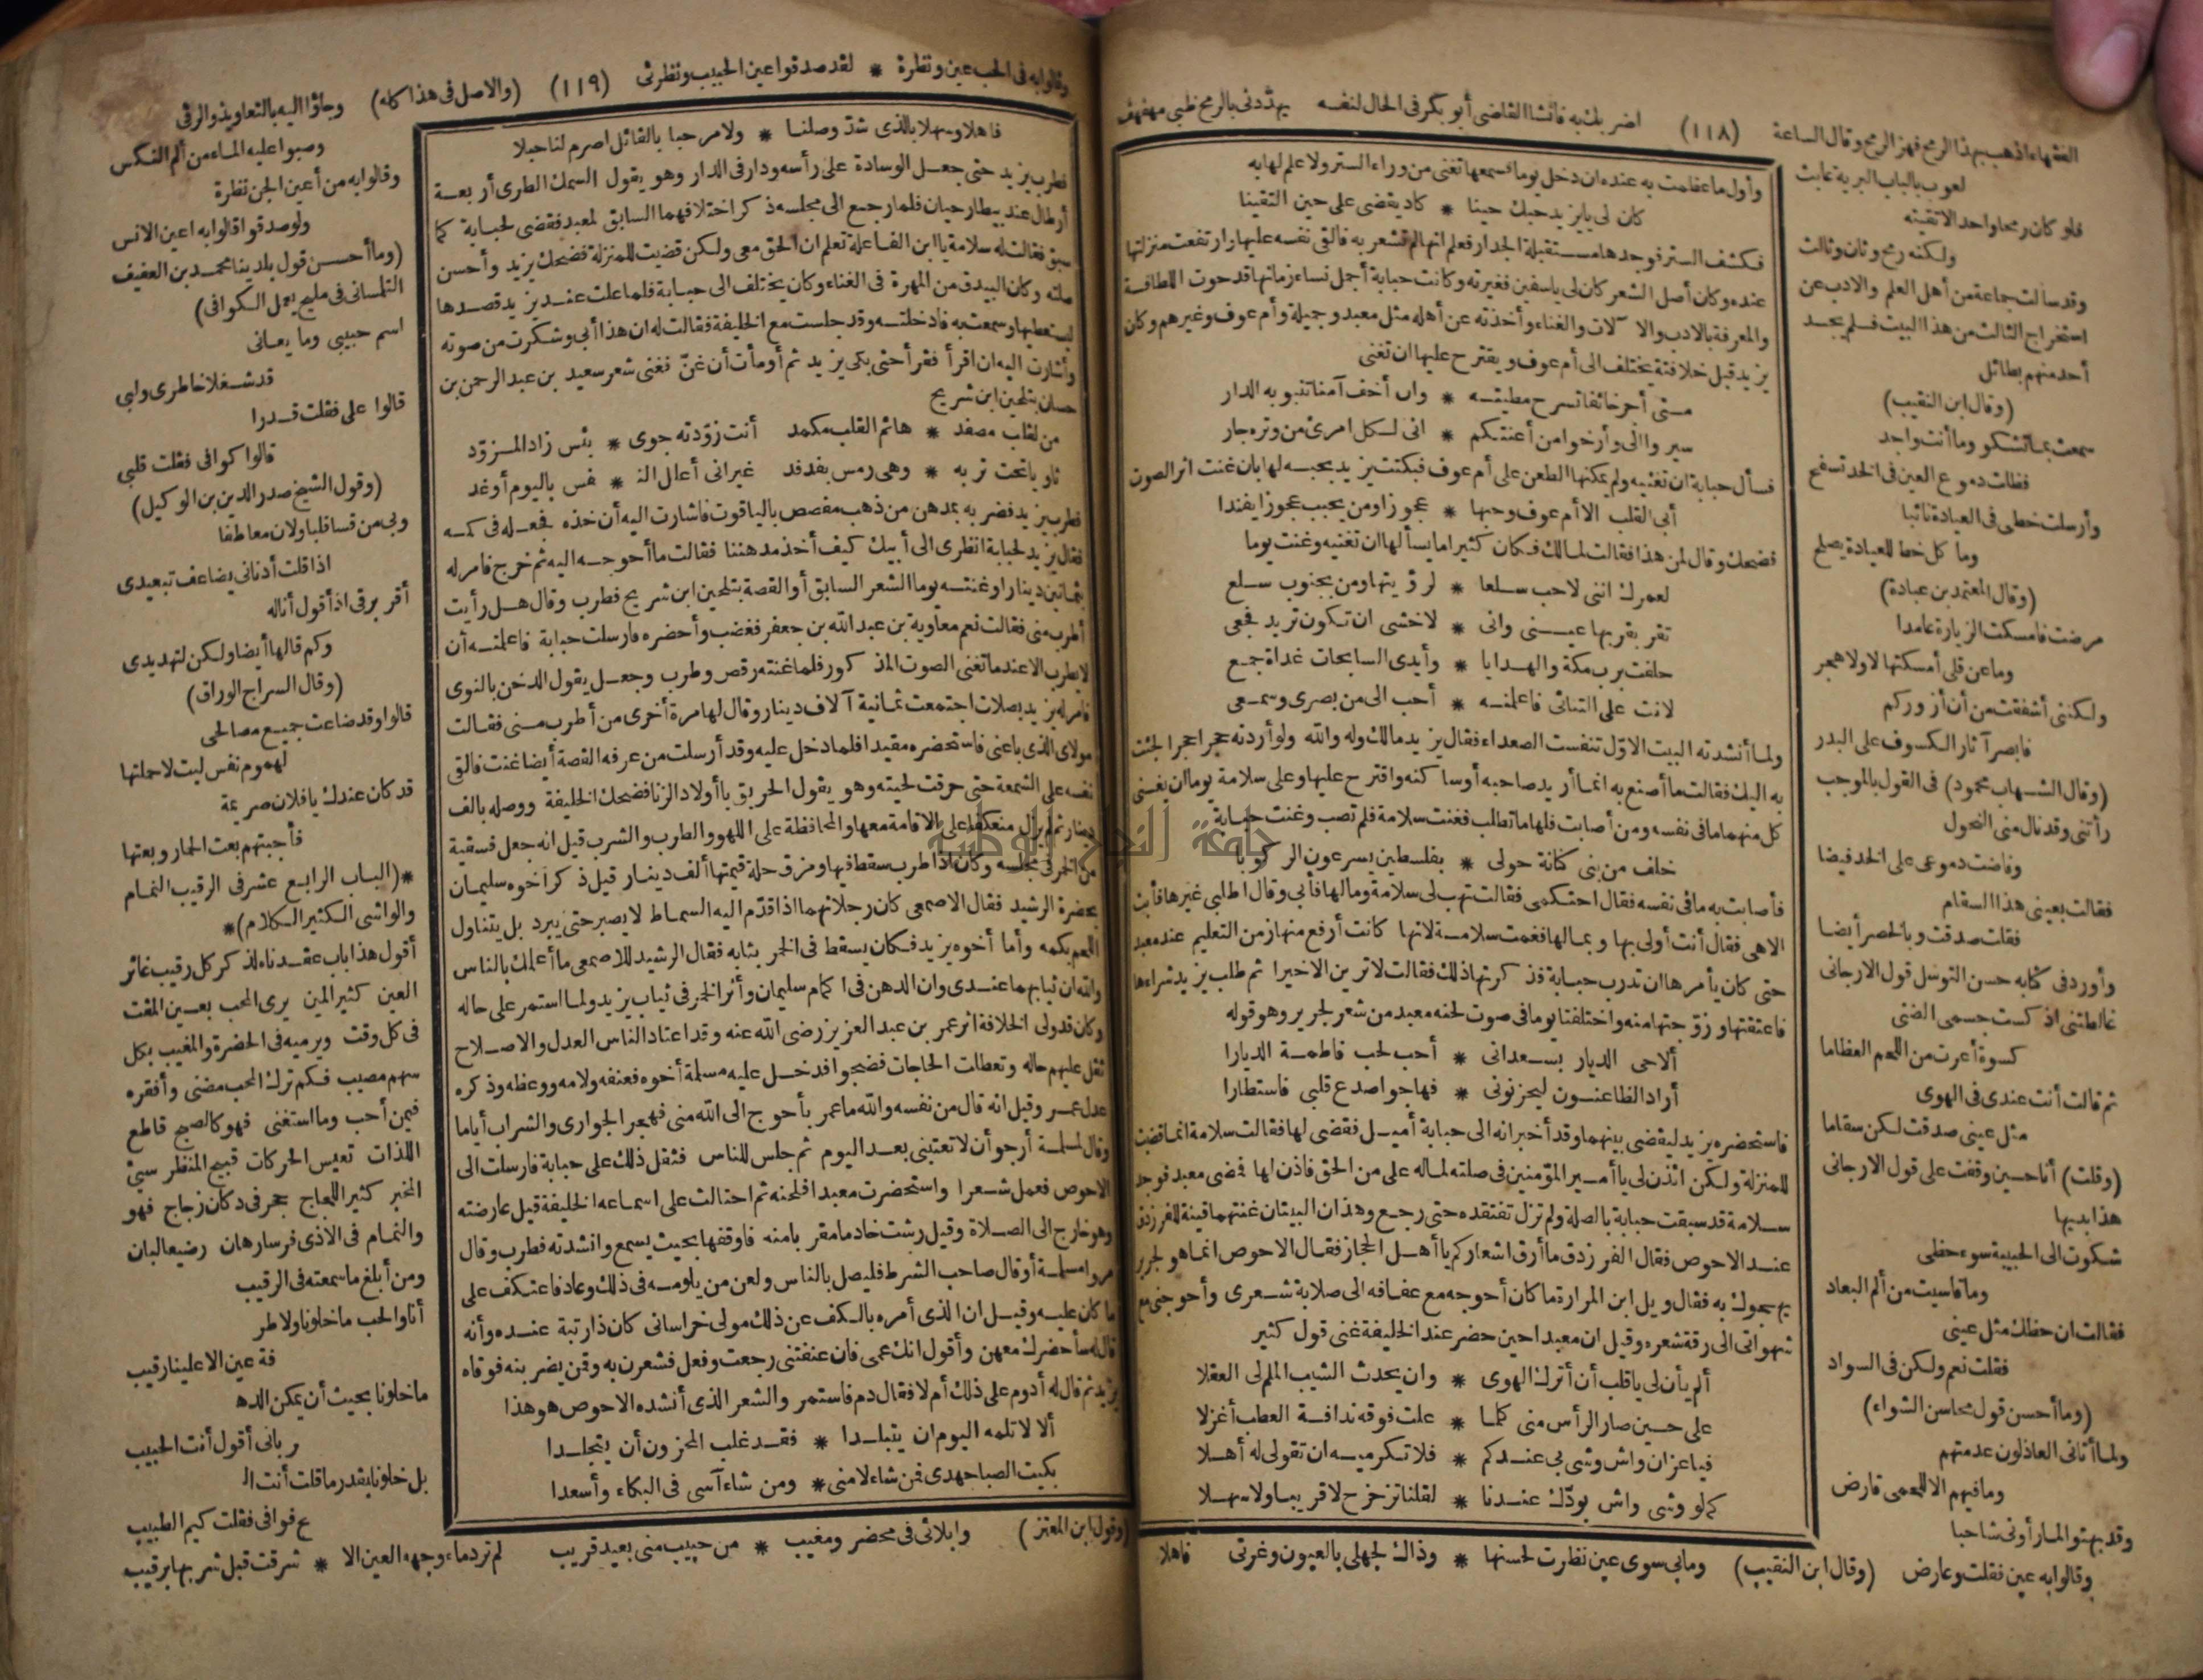 الفقهاء اذهب بهذا الرمح فهز الرمح وقال الساعة (١١٨) اضربك به فانشا القاضي أبو بكر في الحال لنفسه يهددني بالرمح ظبي مهفهف
لعوب بالباب البرية عابث
فلو كان رمحا واحدا لاتقيته
ولكنه رمح وثان وثالث
وقد سألت جماعة من أهل العلم والادب عن
استخراج الثالث من هذا البيت فلم يجد
أحد منهم بطائل
(وقال ابن النقيب)
سمعت بما تشكو وما أنت واجد
فظلت دموع العين في الخد تسفح
وأرسلت خطى في العيادة نائبا
وما كل خط للعيادة يصلح
(وقال المعتمد بن عبادة)
مرضت فامسكت الزيارة عامدا
وما عن قلى أمسكتها لا ولا هجر
ولكنني أشفقت من أن أزوركم
فابصر آثار الكسوف على البدر
(وقال الشهاب محمود) في القول بالموجب
رأتني وقد نال مني النحول
وفاضت دموعي على الخد فيضا
فقالت بعيني هذا السقام
فقلت صدقت وبالخصر أيضا
وأورد في كتابه حسن التوسل قول الارجاني
غالطتني اذ كست جسمي الضنى
كسوة أعرت من اللحم العظاما
ثم قالت أنت عندي في الهوى
مثل عيني صدقت لكن سقاما
(وقلت) أنا حسين وقفت على قول الارجاني
هذا بديها
شكوت الى الحبيبة سوء حظى
وما قاسيت من ألم البعاد
فقالت ان حظك مثل عيني
فقلت نعم ولكن في السواد
(وما أحسن قول محاسن الشواء)
ولما أتاني العاذلون عدمتهم
وما فيهم الا للحمى قارض
وقد بهتوا لما رأوني شاحبا
وقالوا به عين فقلت وعارض (وقال ابن النقيب) وما بي سوى عين نظرت لحسنها * وذاك لجهلي بالعيون وغرتي فاهلا
وأول ما عظمت به عنده ان دخل يوما فسمعها تغني من وراء الستر ولا علم لها به
كان لي يا يزيد حبك حينا * كاد يقضي على حين التقينا
فكشف الستر فوجدها مستقبلة الجدار فعلم انها لم تشعر به فالقى نفسه عليها وارتفعت منزلتها
عنده وكان أصل الشعر كان لي ياسفين فغيرته وكانت حبابة أجمل نساء زمانها قد حوت اللطافة
والمعرفة بالادب والآلات والغناء وأخذته عن أهله مثل معبد وجميلة وأم عوف وغيرهم وكان
يزيد قبل خلافته يختلف الى أم عوف ويقترح عليها ان تغنى
متى أجر خائفا تسرح مطيته * وان أخف آمنا تنبو به الدار
سيروا الى وأرخوا من أعنتكم * اني لكل امرئ من وتره جار
فسأل حبابة ان تغنيه ولم يمكنها الطعن على أم عوف فبكتت يزيد بحبه لها بان غنت اثر الصوت
أبى القلب الا أم عوف وحبها * عجوزا ومن يحبب عجوزا يفندا
فضحك وقال لمن هذا فقالت لمالك فكان كثيرا ما يسألها ان تغنيه وغنت يوما
لعمرك انني لاحب سلعا * لرؤيتها ومن بجنوب سلع
تقر بقربها عيني واني * لاخشى ان تكون تريد فجعى
حلفت برب مكة والهدايا * وأيدي السابحات غداة جمع
لانت على التنائي فاعلمنه * أحب الى من بصري وسمعى
ولما أنشدته البيت الاول تنفست الصعداء فقال يزيد مالك وله والله ولو أردته حجرا حجرا لجئت
به اليك فقالت ما أصنع به انما أريد صاحبه أو ساكنه واقترح عليها وعلى سلامة يوما ان يغنى
كل منهما ما في نفسه ومن أصابت فلها ما تطلب فغنت سلامة فلم تصب وغنت حبابة
خلف من بني كنانة حولى * بفلسطين يسرعون الركوبا
فأصابت به ما في نفسه فقال احتكمى فقالت تهب لي سلامة وما لها فأبى وقال اطلبي غيرها فأبت
الا هى فقال أنت أولى بها وبمالها فغمت سلامة لانها كانت أرفع منها زمن التعليم عند معبد
حتى كان يأمرها ان تدرب حبابة فذكرتها ذلك فقالت لا ترين الا خيرا ثم طلب يزيد شراءها
فاعتقتها وزوجتها منه واختلفتا يوما في صوت لحنه معبد من شعر لجرير وهو قوله
ألا حى الديار بسعد اني * أحب لحب فاطمة الديارا
أراد الظاعنون ليحزنوني * فهاجوا صدع قلبي فاستطارا
فاستحضره يزيد ليقضي بينهما وقد أخبر انه الى حبابة أميل فقضى لها فقالت سلامة انما قضيت
للمنزلة ولكن ائذن لي يا أمير المؤمنين في صلته لما له على من الحق فاذن لها فمضى معبد فوجد
سلامة قد سبقت حبابة بالصلة ولم تزل تفتقده حتى رجع وهذان البيتان غنتهما قينة للفرزدق
عند الاحوص فقال الفرزدق ما أرق أشعاركم يا أهل الحجاز فقال الاحوص انما هو لجرير
يهجوك به فقال ويل ابن المرارة ما كان أحوجه مع عفافه الى صلابة شعرى وأحوجني مع
شهواتي الى رقة شعره وقيل ان معبدا حين حضر عند الخليفة غنى قول كثير
ألم يأن لي يا قلب أن أترك الهوى * وان يحدث الشيب الملم لي العقلا
على حين صار الرأس مني كلما * علت فوقه ندافة العطب أغزلا
فيا عز ان واش وشى بي عندكم * فلا تكرميه ان تقولي له أهلا
كما لو وشى واش بودك عندنا * لقلنا تزحزح لا قريبا ولا سهلا
وقالوا به في الحب عين ونظرة * لقد صدقوا عين الحبيب ونظرتى (١١٩) (والاصل في هذا كله) وجاؤا اليه بالتعاويذ والرقى
فاهلا وسهلا بالذي شد وصلنا * ولا مرحبا بالقائل اصرم لنا حبلا
فطرب يزيد حتى جعل الوسادة على رأسه ودار في الدار وهو يقول السمك الطرى أربعة
أرطال عند بيطار حيان فلما رجع الى مجلسه ذكر اختلافهما السابق لمعبد فقضى لحبابة كما
سبق فقالت له سلامة يا ابن الفاعلة تعلم ان الحق معى ولكن قضيت للمنزلة فضحك يزيد وأحسن
صلته وكان البيدق من المهرة في الغناء وكان يختلف الى حبابة فلما علت عند يزيد قصدها
ليستعطيها وسمعت به فادخلته وقد جلست مع الخليفة فقالت له ان هذا أبي وشكرت من صوته
وأشارت اليه ان اقرأ فقرأ حتى بكى يزيد ثم أومأت أن غن فغنى شعر سعيد بن عبد الرحمن بن
حسان بتلحين ابن شريح
من لقلب مصفد * هائم القلب مكمد أنت زودته جوى * بئس زاد المزود
ثاويا تحت تربه * وهى رمس بفدفد غير اني أعلل النـ * ـفس باليوم أو غد
فطرب يزيد فضربه بمدهن من ذهب مفصص بالياقوت فاشارت اليه أن خذه فجعله في كمه
فقال يزيد لحبابة انظرى الى أبيك كيف أخذ مدهننا فقالت ما أحوجه اليه ثم خرج فامر له
بثمانين دينارا وغنته يوما الشعر السابق أو القصة بتلحين ابن شريح فطرب وقال هل رأيت
أطرب مني فقالت نعم معاوية بن عبد الله بن جعفر فغضب وأحضره فارسلت حبابة فاعلمته أن
لا يطرب الا عندما تغنى الصوت المذكور فلما غنته رقص وطرب وجعل يقول الدخن بالنوى
فامر له يزيد بصلات اجتمعت ثمانية آلاف دينار وقال لها مرة أخرى من أطرب مني فقالت
مولاى الذي باعني فاستحضره مقيدا فلما دخل عليه وقد أرسلت من عرفه القصة أيضا غنت فالقى
نفسه على الشمعة حتى حرقت لحيته وهو يقول الحريق يا أولاد الزنا فضحك الخليفة ووصله بالف
دينار ثم لم يزل منعكفا على الاقامة معها والمحافظة على اللهو والطرب والشرب قيل انه جعل فسقية
من الخمر في مجلسه وكان اذا طرب سقط فيها ومزق حلة قيمتها ألف دينار قيل ذكر أخوه سليمان
بحضرة الرشيد فقال الاصمعى كان رجلا نهما اذا قدم اليه السماط لا يصبر حتى يبرد بل يتناول
اللحم بكمه وأما أخوه يزيد فكان يسقط في الخمر بثيابه فقال الرشيد للاصمعى ما أعلمك بالناس
والله ان ثيابهما عندى وان الدهن في اكمام سليمان وأثر الخمر في ثياب يزيد ولما استمر على حاله
وكان قد ولى الخلافة اثر عمر بن عبد العزيز رضى الله عنه وقد اعتاد الناس العدل والاصلاح
ثقل عليهم حاله وتعطلت الحاجات فضجوا فدخل عليه مسلمة أخوه فعنفه ولامه ووعظه وذكره
عدل عمر وقيل انه قال من نفسه والله ما عمر بأحوج الى الله منى فهجر الجوارى والشراب أياما
وقال لمسلمة أرجو أن لا تعتبني بعد اليوم ثم جلس للناس فثقل ذلك على حبابة فارسلت الى
الاحوص فعمل شعرا واستحضرت معبدا فلحنه ثم احتالت على اسماعه الخليفة قيل عارضته
وهو خارج الى الصلاة وقيل رشت خادما مقربا منه فاوقفها بحيث يسمع وانشدته فطرب وقال
مروا مسلمة أو قال صاحب الشرط فليصل بالناس ولعن من يلومه في ذلك وعاد فاعتكف على
ما كان عليه وقيل ان الذى أمره بالكف عن ذلك مولى خراساني كان ذا رتبة عنده وأنه
قال له سأحضرك معهن وأقول انك عمى فان عنفتني رجعت وفعل فشعرن به وقمن يضربنه فوقاه
يزيد ثم قال له أدوم على ذلك أم لا فقال دم فاستمر والشعر الذى أنشده الاحوص هو هذا
ألا لا تلمه اليوم ان يتبلدا * فقد غلب المحزون أن يتجلدا
بكيت الصبا جهدى فمن شاء لامني * ومن شاء آسى في البكاء وأسعدا
وصبوا عليه الماء من ألم النكس
وقالوا به من أعين الجن نظرة
ولو صدقوا قالوا به اعين الانس
(وما أحسن قول بلدينا محمد بن العفيف
التلمساني في مليح يعمل الكوافي)
اسم حبيبي وما يعاني
قد شغلا خاطرى ولبى
قالوا على فقلت قدرا
قالوا كوافى فقلت قلبي
(وقول الشيخ صدر الدين بن الوكيل)
وبى من قسا قلبا ولان معاطفا
اذا قلت أدناني يضاعف تبعيدى
أقر برقى اذ أقول أنا له
وكم قالها أيضا ولكن لتهديدى
(وقال السراج الوراق)
قالوا وقد ضاعت جميع مصالحى
لهموم نفس ليت لا حملتها
قد كان عندك يا فلان صريمة
فأجبتهم بعت الحمار وبعتها
*(الباب الرابع عشر في الرقيب النمام
والواشى الكثير الكلام)*
أقول هذا باب عقدناه لذكر كل رقيب غائر
العين كثير المين يرى المحب بعين المقت
في كل وقت ويرميه في الحضرة والمغيب بكل
سهم مصيب فكم ترك المحب مضنى وأفقره
فيمن أحب وما استغنى فهو كالصبح قاطع
اللذات تعيس الحركات قبيح المنظر سيئ
المخبر كثير اللجاج حجر في دكان زجاج فهو
والنمام في الاذى فرسا رهان رضيعا لبان
ومن أبلغ ما سمعته في الرقيب
أنا والحب ما خلونا ولا طر
فة عين الا علينا رقيب
ما خلونا بحيث أن يمكن الدهـ
ر باني أقول أنت الحبيب
بل خلونا بقدر ما قلت أنت الـ
ح فوافى فقلت كيم الطبيب
(وقول ابن المعتز) وابلائي في محضر ومغيب * من حبيب مني بعيد قريب لم ترد ماء وجهه العين الا * شرقت قبل شربها برقيب
جامعة النجاح الوطنية